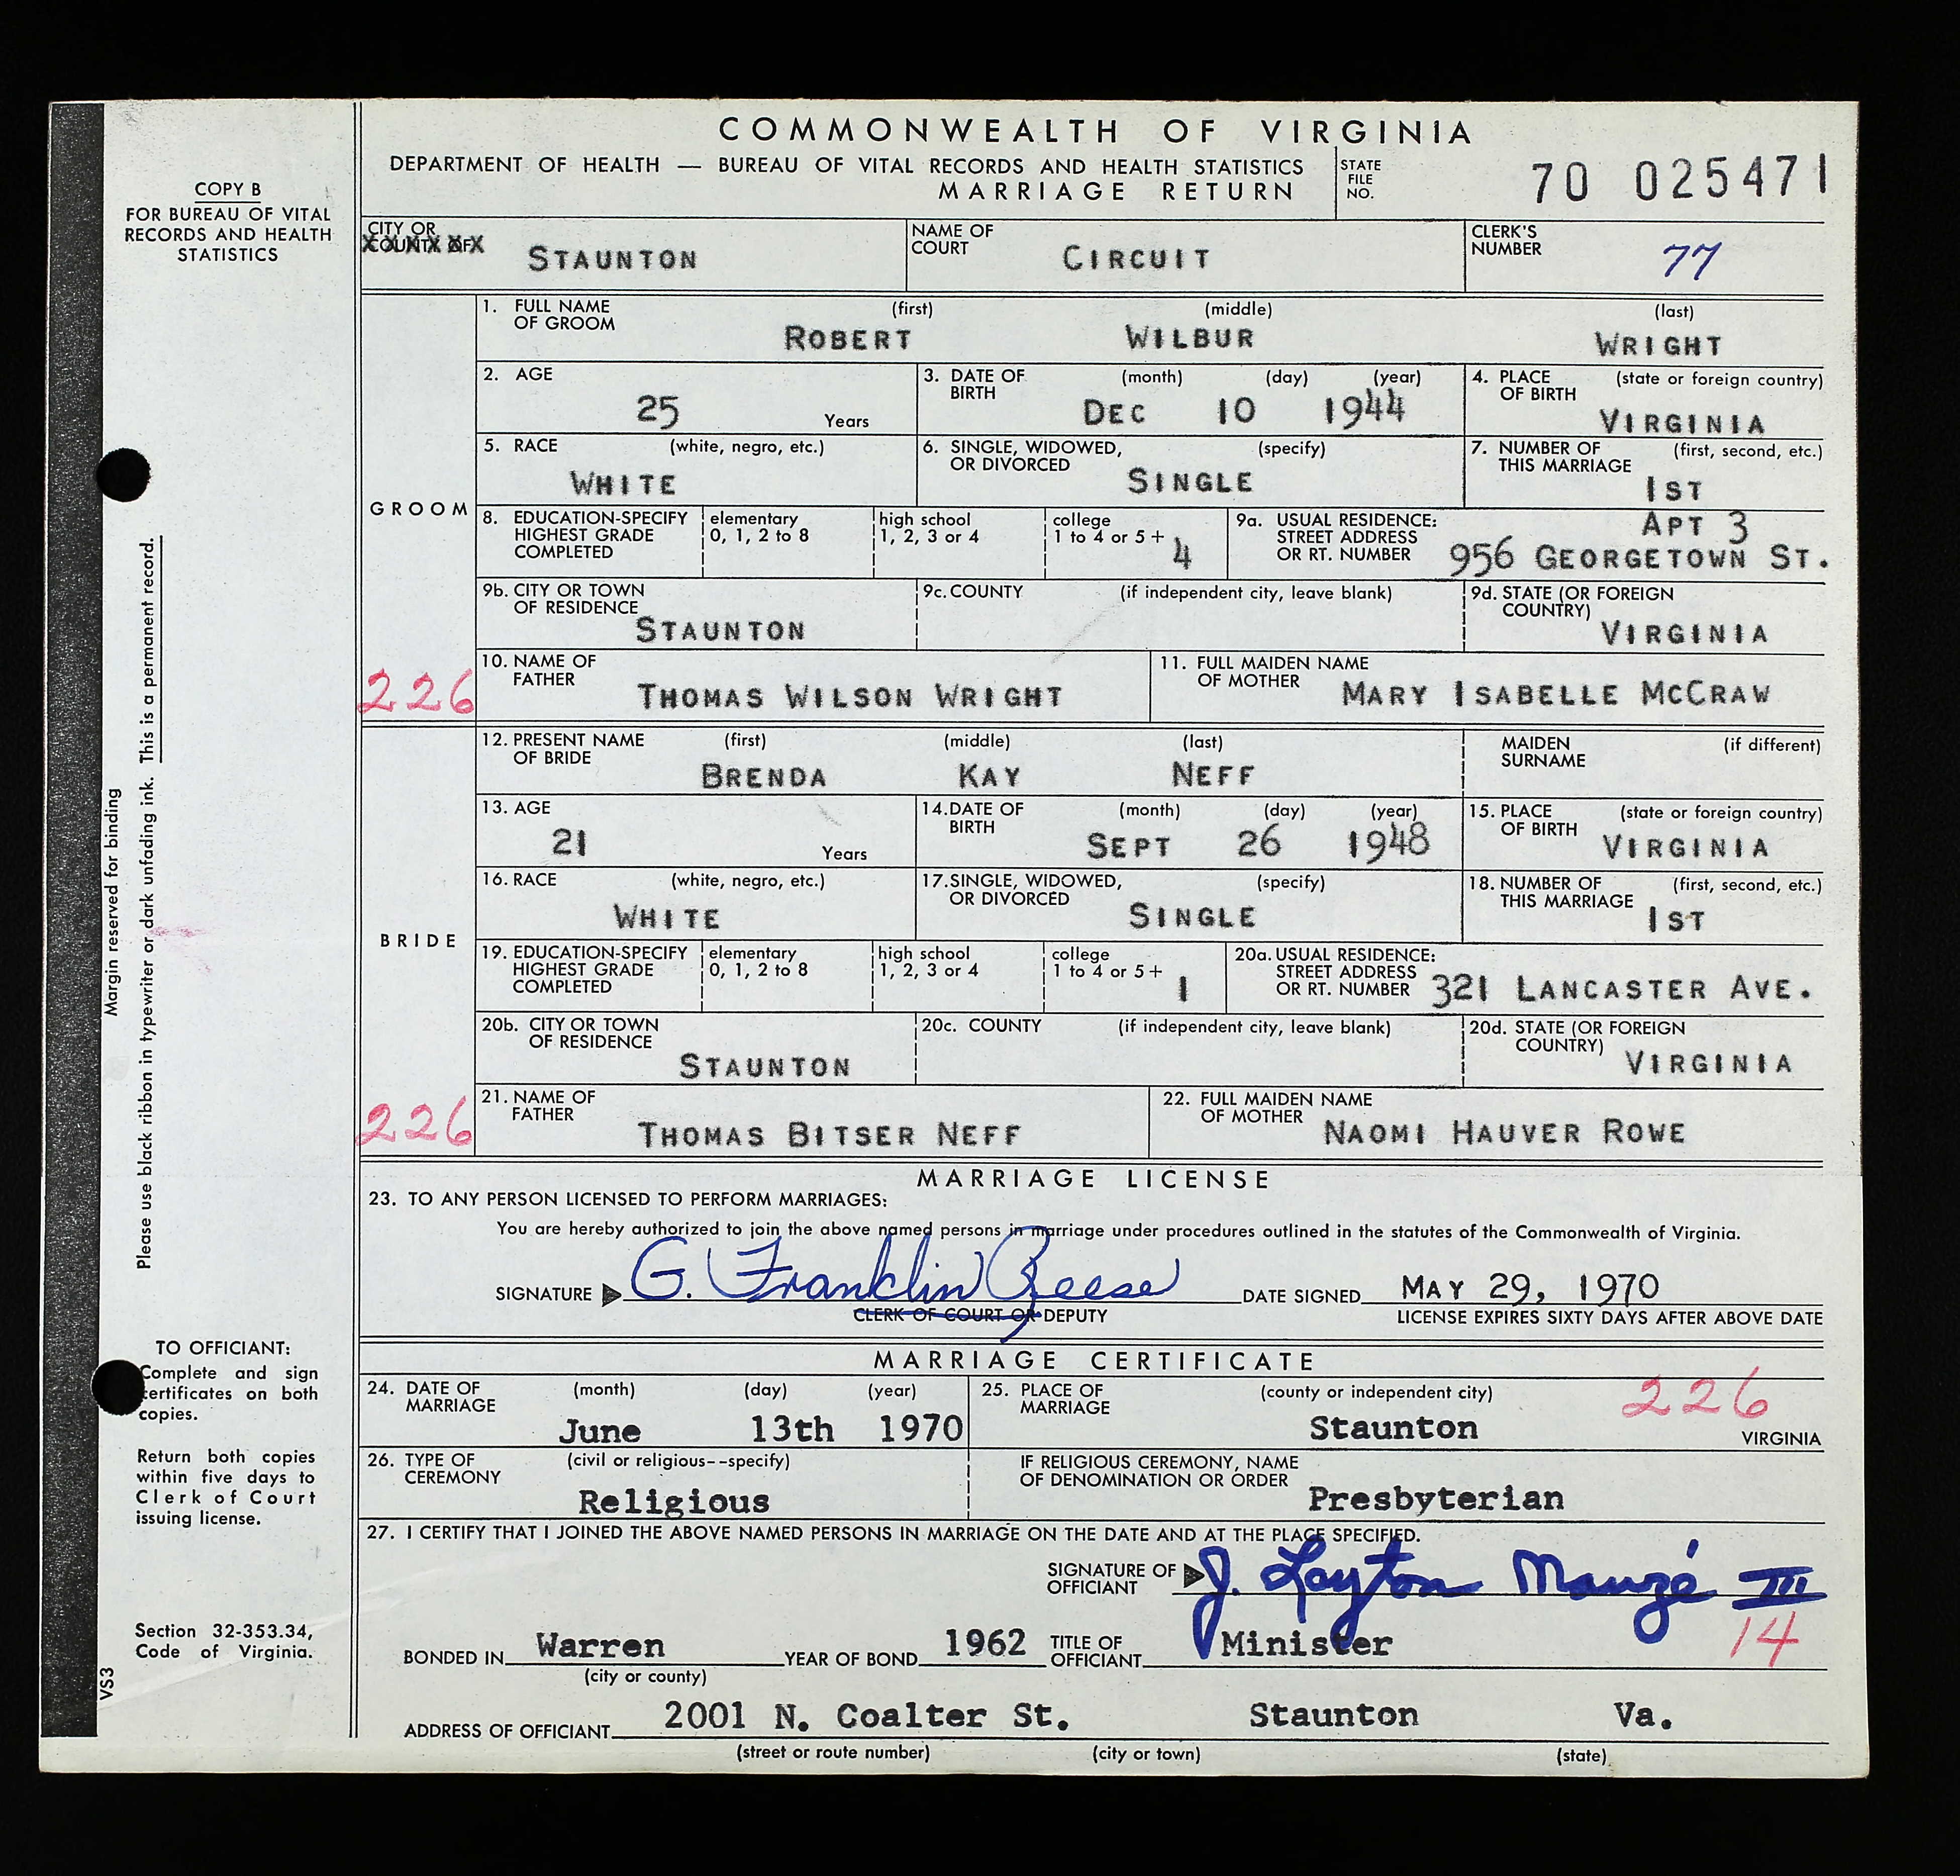 COMMONWEALTH OF VIRGINIA
DEPARTMENT OF HEALTH — BUREAU OF VITAL RECORDS AND HEALTH STATISTICS
MARRIAGE RETURN
STATE FILE NO. 70 025471
COPY B
FOR BUREAU OF VITAL
RECORDS AND HEALTH
STATISTICS
CITY OR COUNTY OF STAUNTON
NAME OF COURT CIRCUIT
CLERK'S NUMBER 77
GROOM
1. FULL NAME OF GROOM (first) ROBERT (middle) WILBUR (last) WRIGHT
2. AGE 25 Years
3. DATE OF BIRTH (month) DEC (day) 10 (year) 1944
4. PLACE OF BIRTH (state or foreign country) VIRGINIA
5. RACE (white, negro, etc.) WHITE
6. SINGLE, WIDOWED, OR DIVORCED (specify) SINGLE
7. NUMBER OF THIS MARRIAGE (first, second, etc.) 1ST
8. EDUCATION-SPECIFY HIGHEST GRADE COMPLETED elementary 0, 1, 2 to 8 high school 1, 2, 3 or 4 college 1 to 4 or 5+ 4
9a. USUAL RESIDENCE: STREET ADDRESS OR RT. NUMBER APT 3 956 GEORGETOWN ST.
9b. CITY OR TOWN OF RESIDENCE STAUNTON
9c. COUNTY (if independent city, leave blank)
9d. STATE (OR FOREIGN COUNTRY) VIRGINIA
226
10. NAME OF FATHER THOMAS WILSON WRIGHT
11. FULL MAIDEN NAME OF MOTHER MARY ISABELLE MCCRAW
BRIDE
12. PRESENT NAME OF BRIDE (first) BRENDA (middle) KAY (last) NEFF
MAIDEN SURNAME (if different)
13. AGE 21 Years
14. DATE OF BIRTH (month) SEPT (day) 26 (year) 1948
15. PLACE OF BIRTH (state or foreign country) VIRGINIA
16. RACE (white, negro, etc.) WHITE
17. SINGLE, WIDOWED, OR DIVORCED (specify) SINGLE
18. NUMBER OF THIS MARRIAGE (first, second, etc.) 1ST
19. EDUCATION-SPECIFY HIGHEST GRADE COMPLETED elementary 0, 1, 2 to 8 high school 1, 2, 3 or 4 college 1 to 4 or 5+ 1
20a. USUAL RESIDENCE: STREET ADDRESS OR RT. NUMBER 321 LANCASTER AVE.
20b. CITY OR TOWN OF RESIDENCE STAUNTON
20c. COUNTY (if independent city, leave blank)
20d. STATE (OR FOREIGN COUNTRY) VIRGINIA
226
21. NAME OF FATHER THOMAS BITSER NEFF
22. FULL MAIDEN NAME OF MOTHER NAOMI HAUVER ROWE
MARRIAGE LICENSE
23. TO ANY PERSON LICENSED TO PERFORM MARRIAGES:
You are hereby authorized to join the above named persons in marriage under procedures outlined in the statutes of the Commonwealth of Virginia.
SIGNATURE G. Franklin Reese DATE SIGNED MAY 29, 1970
CLERK OF COURT OR DEPUTY LICENSE EXPIRES SIXTY DAYS AFTER ABOVE DATE
MARRIAGE CERTIFICATE
24. DATE OF MARRIAGE (month) June (day) 13th (year) 1970
25. PLACE OF MARRIAGE (county or independent city) Staunton 226 VIRGINIA
26. TYPE OF CEREMONY (civil or religious--specify) Religious
IF RELIGIOUS CEREMONY, NAME OF DENOMINATION OR ORDER Presbyterian
27. I CERTIFY THAT I JOINED THE ABOVE NAMED PERSONS IN MARRIAGE ON THE DATE AND AT THE PLACE SPECIFIED.
SIGNATURE OF OFFICIANT J. Layton Mauzé III
BONDED IN Warren (city or county) YEAR OF BOND 1962 TITLE OF OFFICIANT Minister 14
ADDRESS OF OFFICIANT 2001 N. Coalter St. Staunton Va.
(street or route number) (city or town) (state)
Margin reserved for binding
Please use black ribbon in typewriter or dark unfading ink. This is a permanent record.
TO OFFICIANT:
Complete and sign
certificates on both
copies.
Return both copies
within five days to
Clerk of Court
issuing license.
Section 32-353.34,
Code of Virginia.
VS3